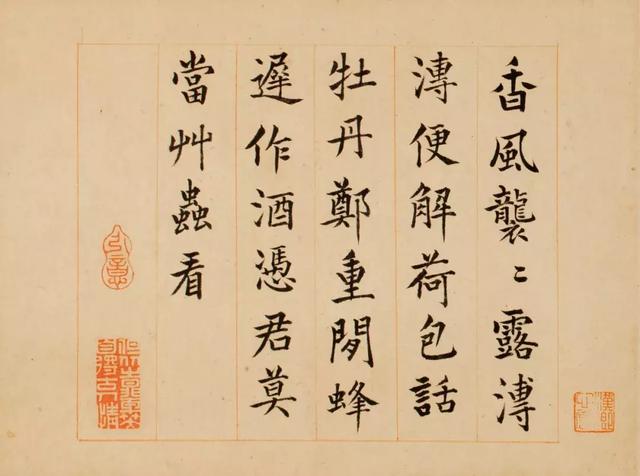 香風襲〻露漙
漙便解荷包話
牡丹鄭重閒蜂
遲作酒憑君莫
當艸蟲看